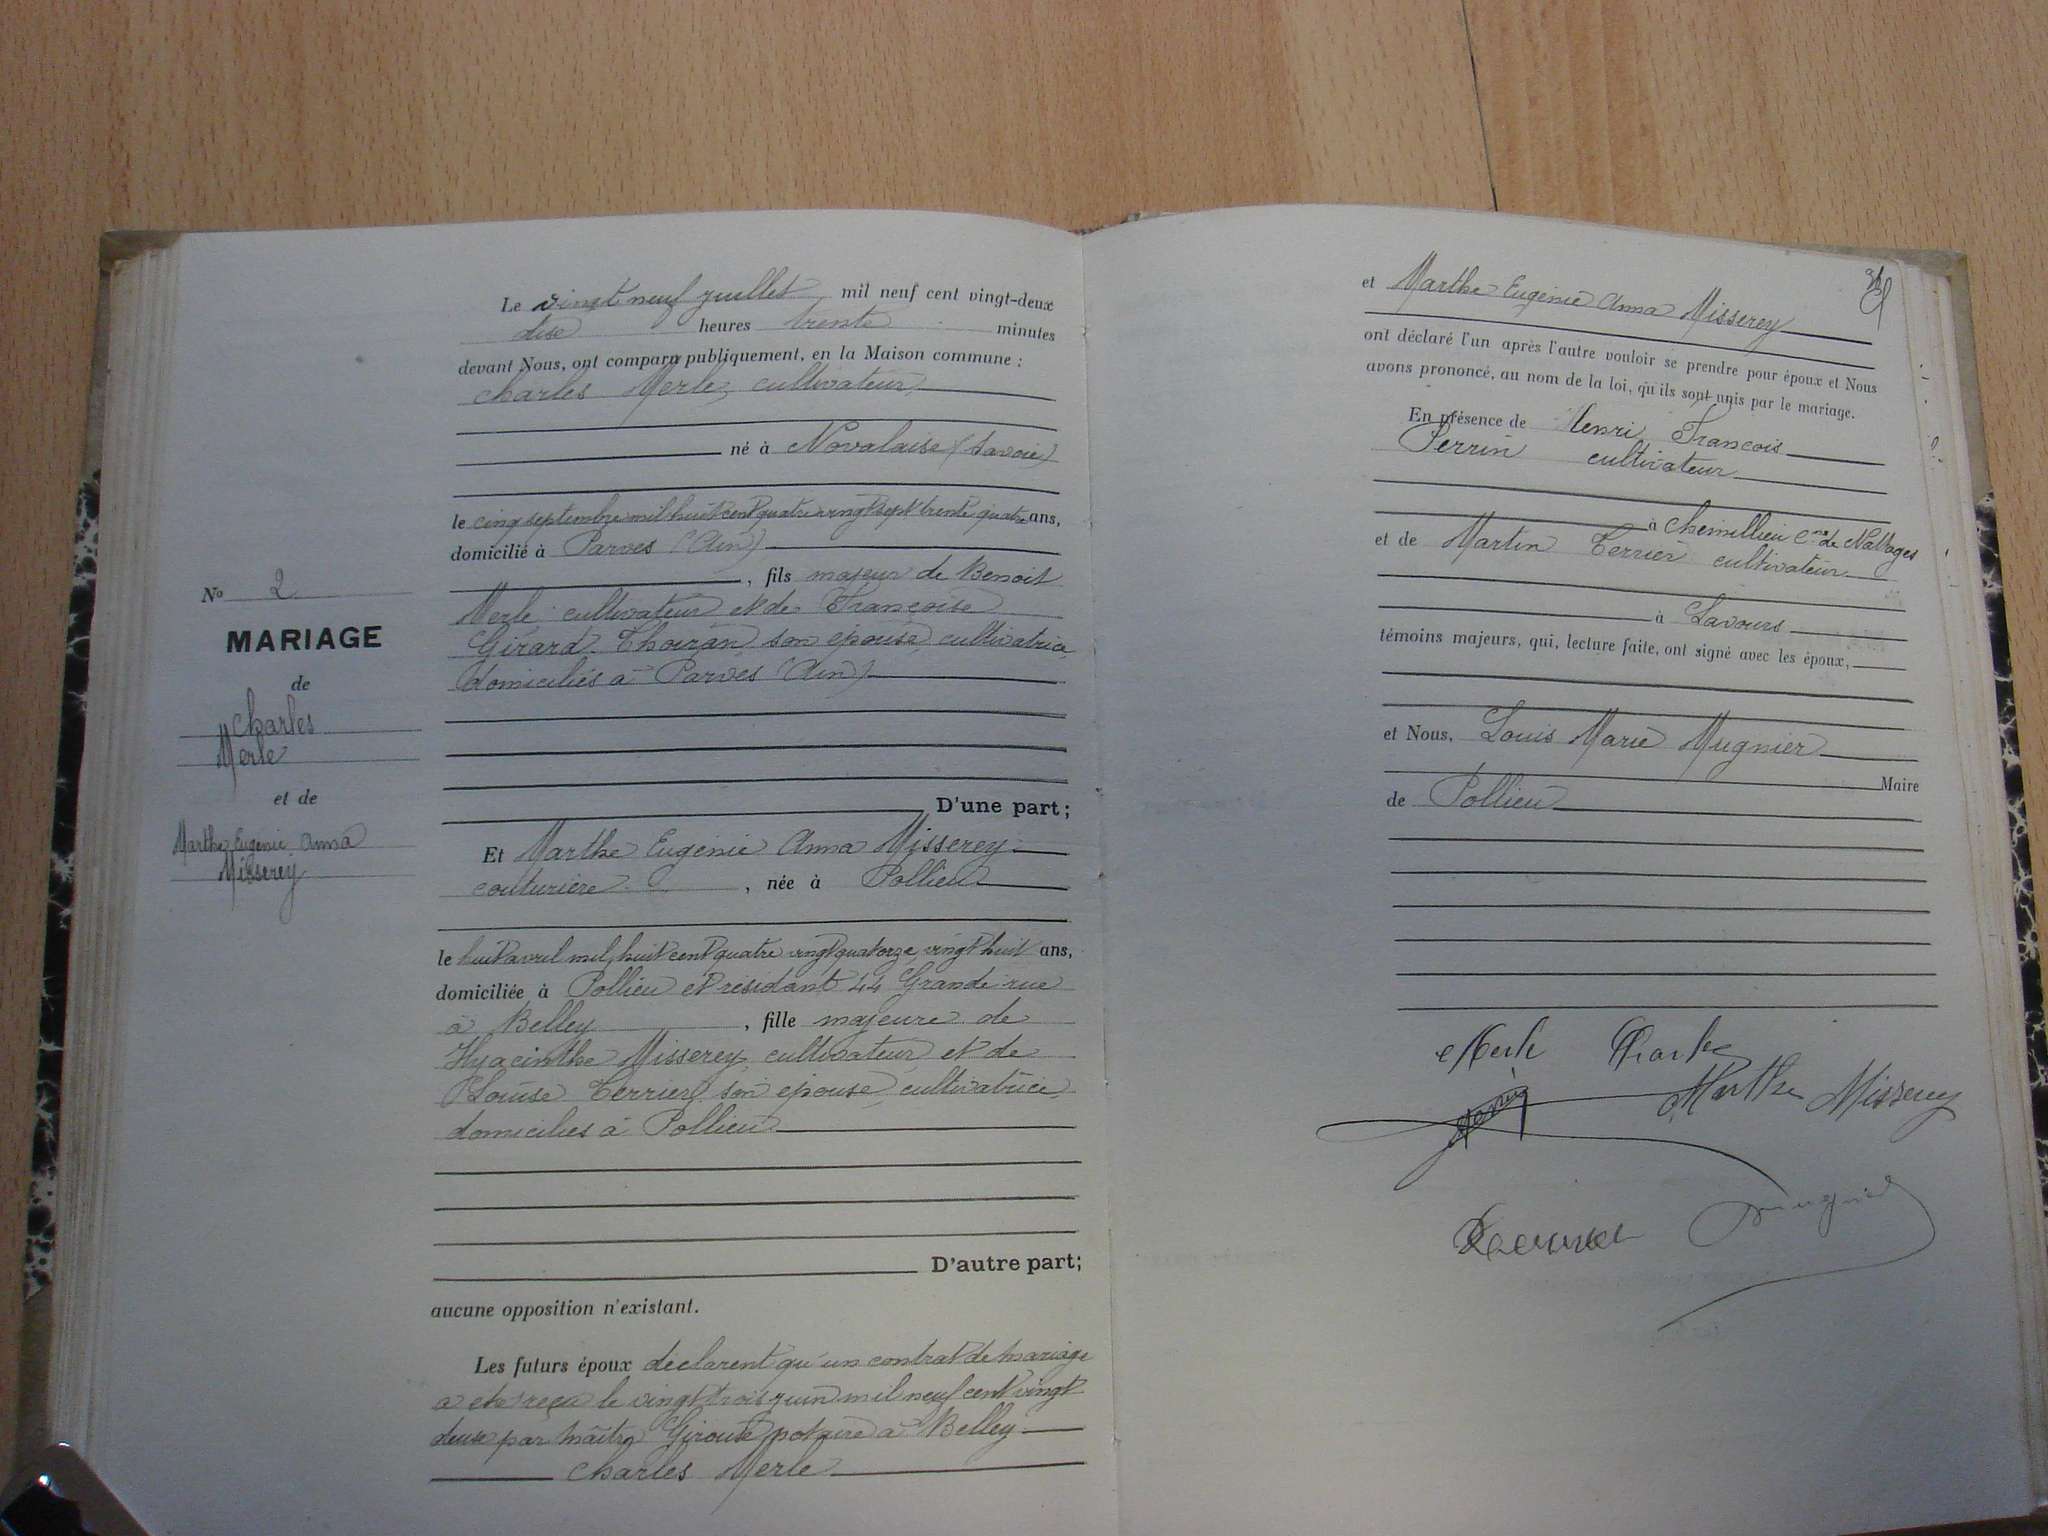 No 2
MARIAGE
de
Charles
Merle
et de
Marthe Eugénie Anna
Misserey
Le vingt neuf juillet mil neuf cent vingt-deux
dix heures trente minutes
devant Nous, ont comparu publiquement, en la Maison commune :
Charles Merle, cultivateur
né à Novalaise (Savoie)
le cinq septembre mil huit cent quatre vingt sept trente quatre ans,
domicilié à Parves (Ain)
, fils majeur de Benoit
Merle cultivateur et de Françoise
Girard Thoiran, son épouse, cultivatrice,
domiciliés à Parves (Ain)
D'une part;
Et Marthe Eugénie Anna Misserey
couturière , née à Pollieu
le huit avril mil huit cent quatre vingt quatorze, vingt huit ans,
domiciliée à Pollieu et résidant 44 Grande rue
à Belley , fille majeure de
Hyacinthe Misserey, cultivateur et de
Louise Terrier son épouse, cultivatrice,
domiciliés à Pollieu
D'autre part;
aucune opposition n'existant.
Les futurs époux déclarent qu'un contrat de mariage
a été reçu le vingt trois juin mil neuf cent vingt
deux par maître notaire à Belley
Charles Merle
et Marthe Eugénie Anna Misserey
ont déclaré l'un après l'autre vouloir se prendre pour époux et Nous
avons prononcé, au nom de la loi, qu'ils sont unis par le mariage.
En présence de Henri François
Perrin cultivateur
à Chemillieu Cne de Nattages
et de Martin Terrier cultivateur
à Lavours
témoins majeurs, qui, lecture faite, ont signé avec les époux,
et Nous, Louis Marie Mugnier
Maire
de Pollieu
Merle Charles
Marthe Misserey
Mugnier